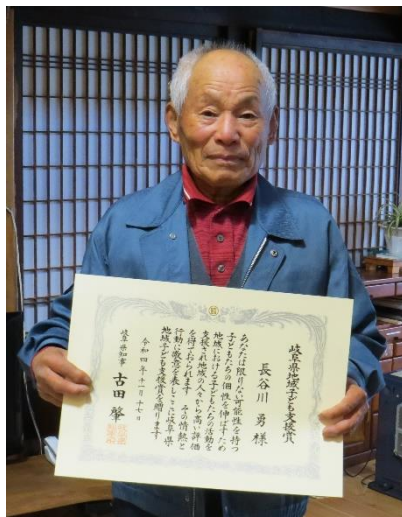 岐阜県地域子ども支援賞
長谷川 勇 様
あなたは限りない可能性を持つ
子どもたちの個性を伸ばすため
地域における子どもたちの活動を
支援され地域の人々から高い評価
を得ておられます その情熱と
行動に敬意を表しここに岐阜県
地域子ども支援賞を贈ります
令和四年十一月十七日
岐阜県知事 古田 肇